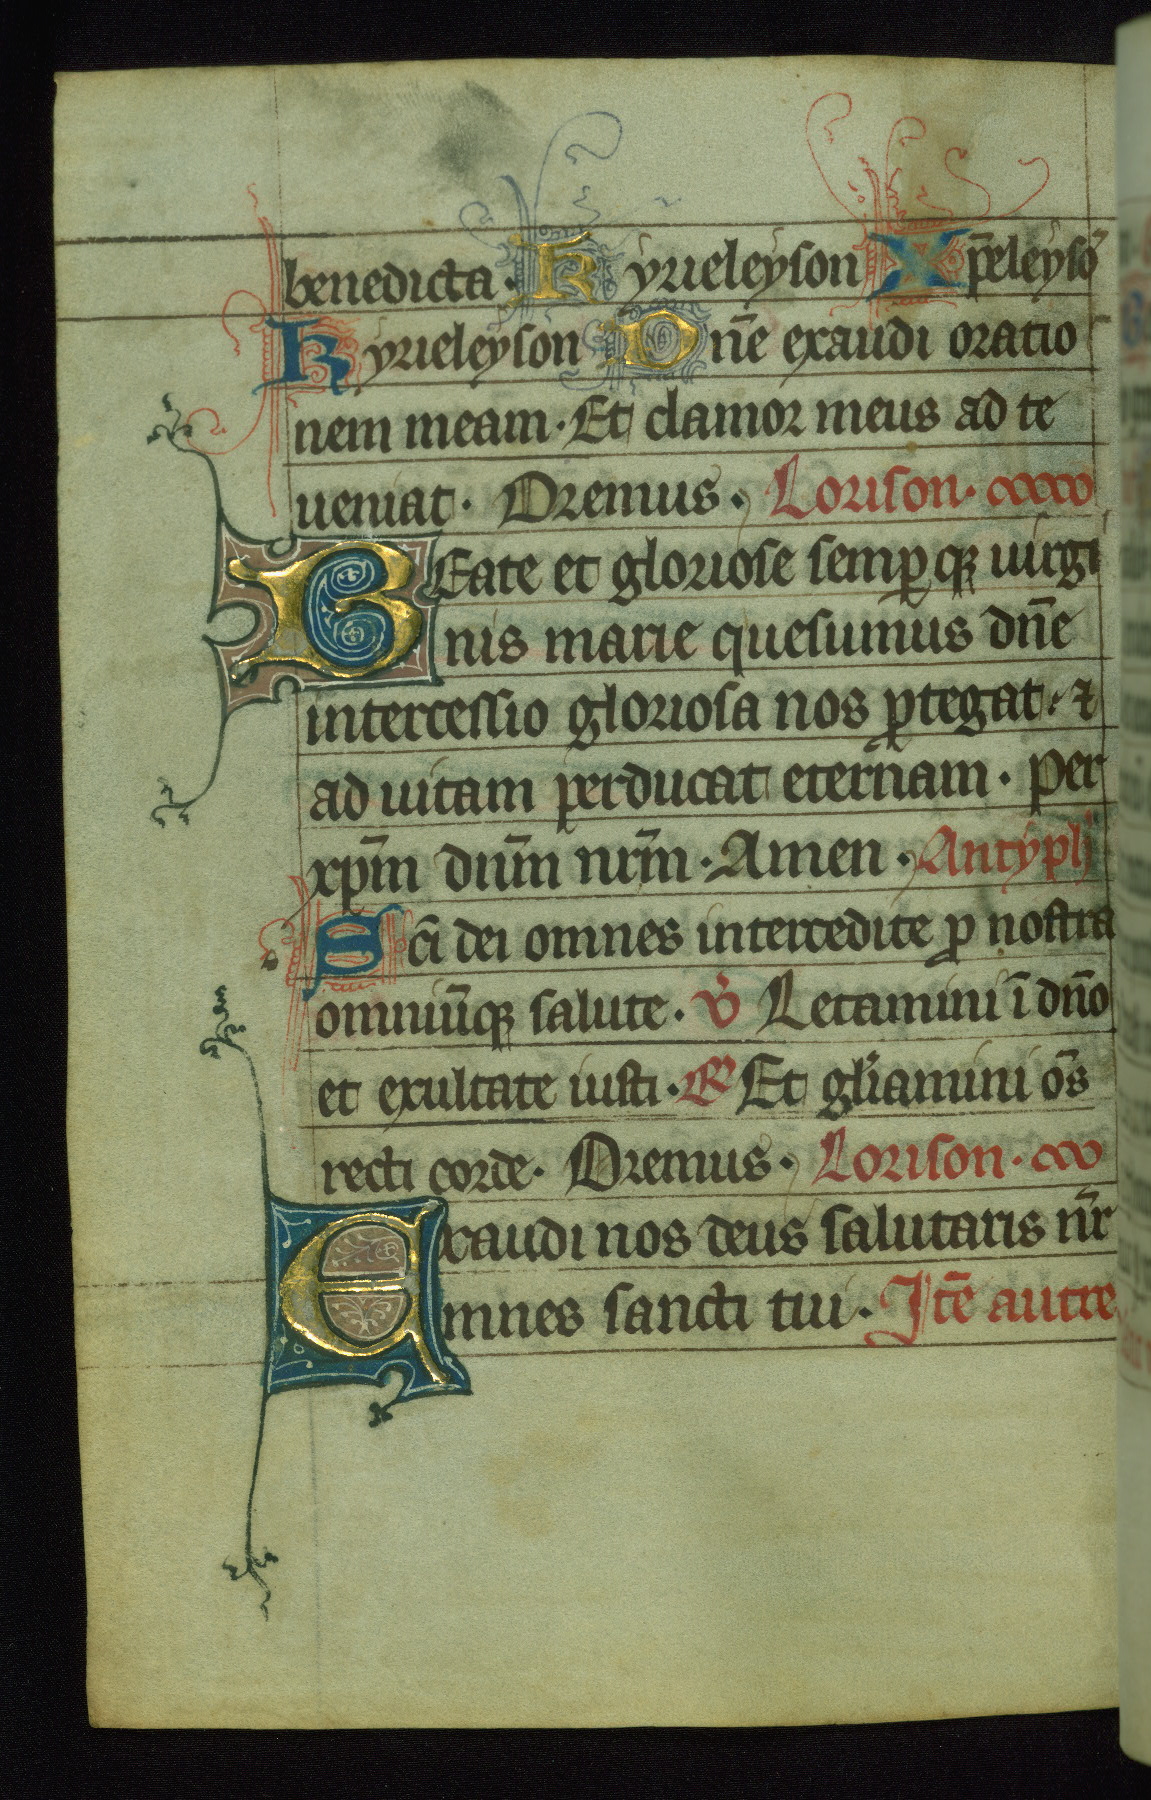 benedicta. Kyrieleyson Xp̄eleysō
Kyrieleyson Dn̄e exaudi oratio
nem meam. Et clamor meus ad te
ueniat. Oremus. Lorison.
BEate et gloriose semꝑ qꝫ uirgi
nis marie quesumus dn̄e
intercessio gloriosa nos ꝓtegat. ⁊
ad uitam perducat eternam. Per
xp̄m dnm̄ nrm̄. Amen. Antyph
Sc̄i dei omnes intercedite ꝓ nostra
omniūqꝫ salute. v̄ Letamini ī dn̄o
et exultate iusti. R Et gl'iamini om̄s
recti corde. Oremus. Lorison.
Exaudi nos deus salutaris nr̄
omnes sancti tui. Itē autre